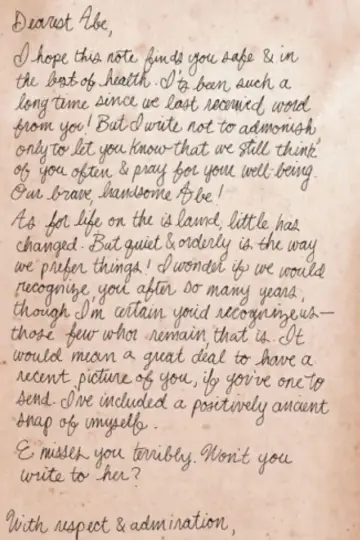 Dearest Abe,
I hope this note finds you safe & in
the best of health. It's been such a
long time since we last received word
from you! But I write not to admonish
only to let you know that we still think
of you often & pray for your well-being.
Our brave, handsome Abe!
As for life on the island, little has
changed. But quiet & orderly is the way
we prefer things! I wonder if we would
recognize you after so many years,
though I'm certain you'd recognize us—
those few who remain, that is. It
would mean a great deal to have a
recent picture of you, if you've one to
send. I've included a positively ancient
snap of myself.
E misses you terribly. Won't you
write to her?
With respect & admiration,